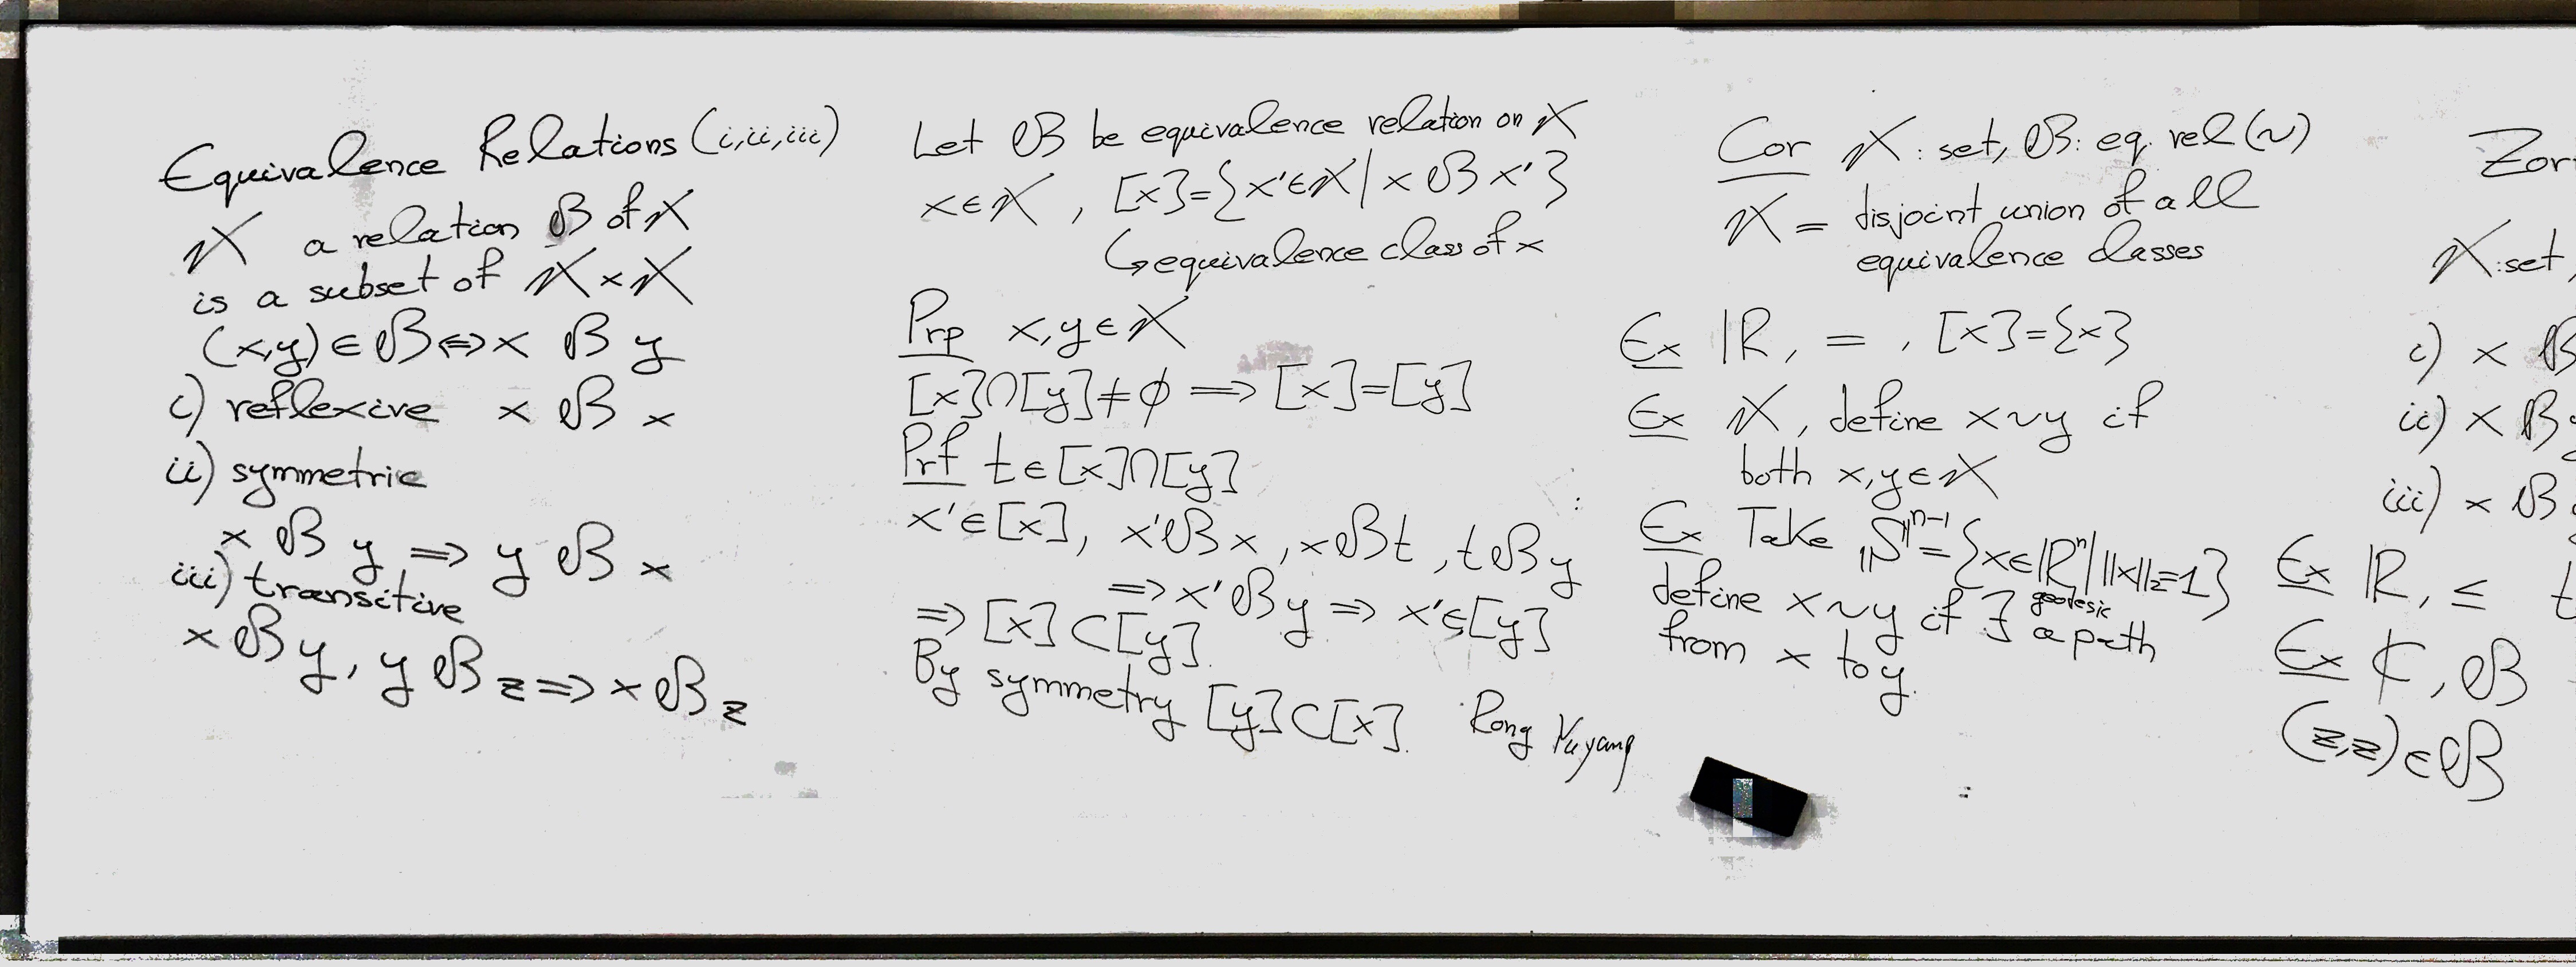 Equivalence Relations (i,ii,iii)
X a relation B of X
is a subset of X × X
(x,y) ∈ B ⇔ x B y
i) reflexive x B x
ii) symmetric
x B y ⇒ y B x
iii) transitive
x B y, y B z ⇒ x B z
Let B be equivalence relation on X
x ∈ X , [x]={x'∈X | x B x'}
↪ equivalence class of x
Prp x,y ∈ X
[x]∩[y]≠∅ ⟹ [x]=[y]
Prf t ∈ [x]∩[y]
x'∈[x], x'B x, x B t, t B y
⇒ x'B y ⇒ x'∈[y]
⇒ [x]⊂[y].
By symmetry [y]⊂[x].
Rong Yuyang
Cor X: set, B: eq. rel (~)
X = disjoint union of all
equivalence classes
Ex ℝ, =, [x]={x}
Ex X, define x~y if
both x,y ∈ X
Ex Take S^{n-1}={x∈ℝ^n | ||x||_2=1}
define x~y if ∃ geodesic
a path
from x to y.
Zor
X:set,
i) x B
ii) x B y
iii) x B
Ex ℝ, ≤ t
Ex ℂ, B
(z,z) ∈ B